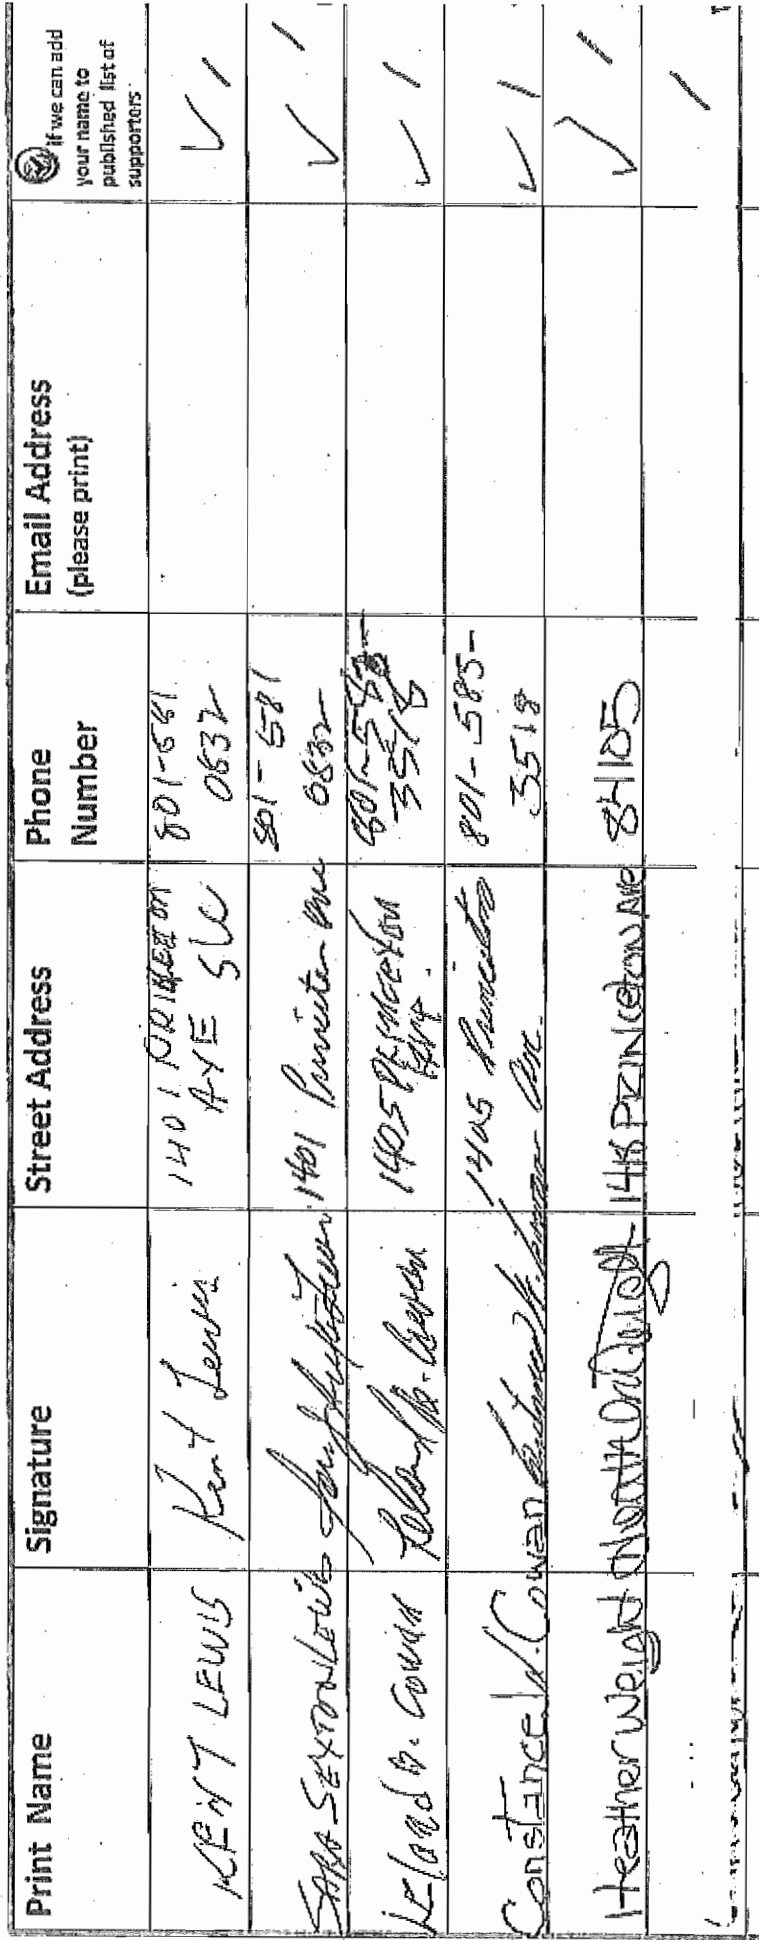 Print Name Signature Street Address Phone Number Email Address (please print) if we can add your name to published list of supporters
KENT LEWIS Kent Lewis 1401 PRINCETON AVE SLC 801-581 0632 ✓ /
SARA SEXTON LEWIS 1401 Princeton Ave 801-581 0632 ✓ /
Leland B. Cowan 1405 Princeton Ave. 3518 ✓ /
Constance W. Cowan 1405 Princeton Ave. 801-585-3518 ✓ /
Heather Weight 14 PRINCETON AVE 84105 ✓ /
/